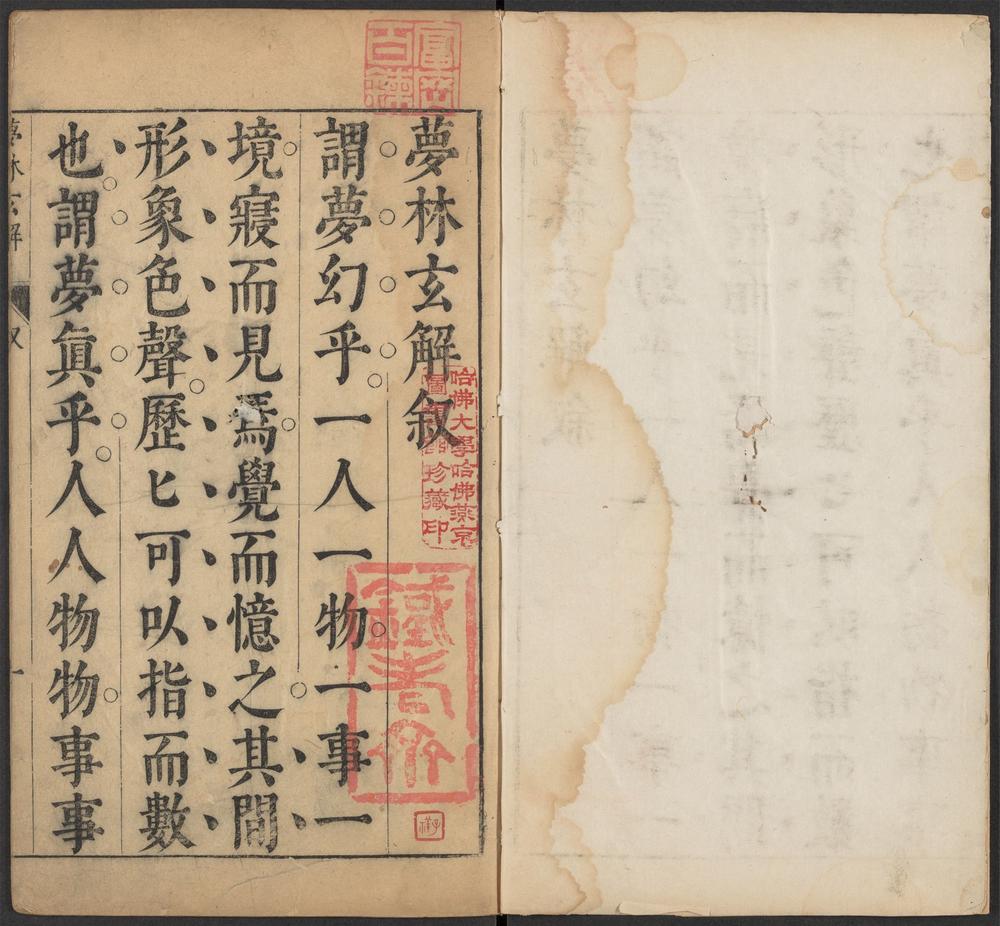 夢林玄解叙
謂夢幻乎一人一物一事一
境寢而見焉覺而憶之其間
形象色聲歷匕可以指而數
也謂夢眞乎人人物物事事
夢林玄解
叙
一
哈佛大學哈佛燕京
圖書館珍藏印